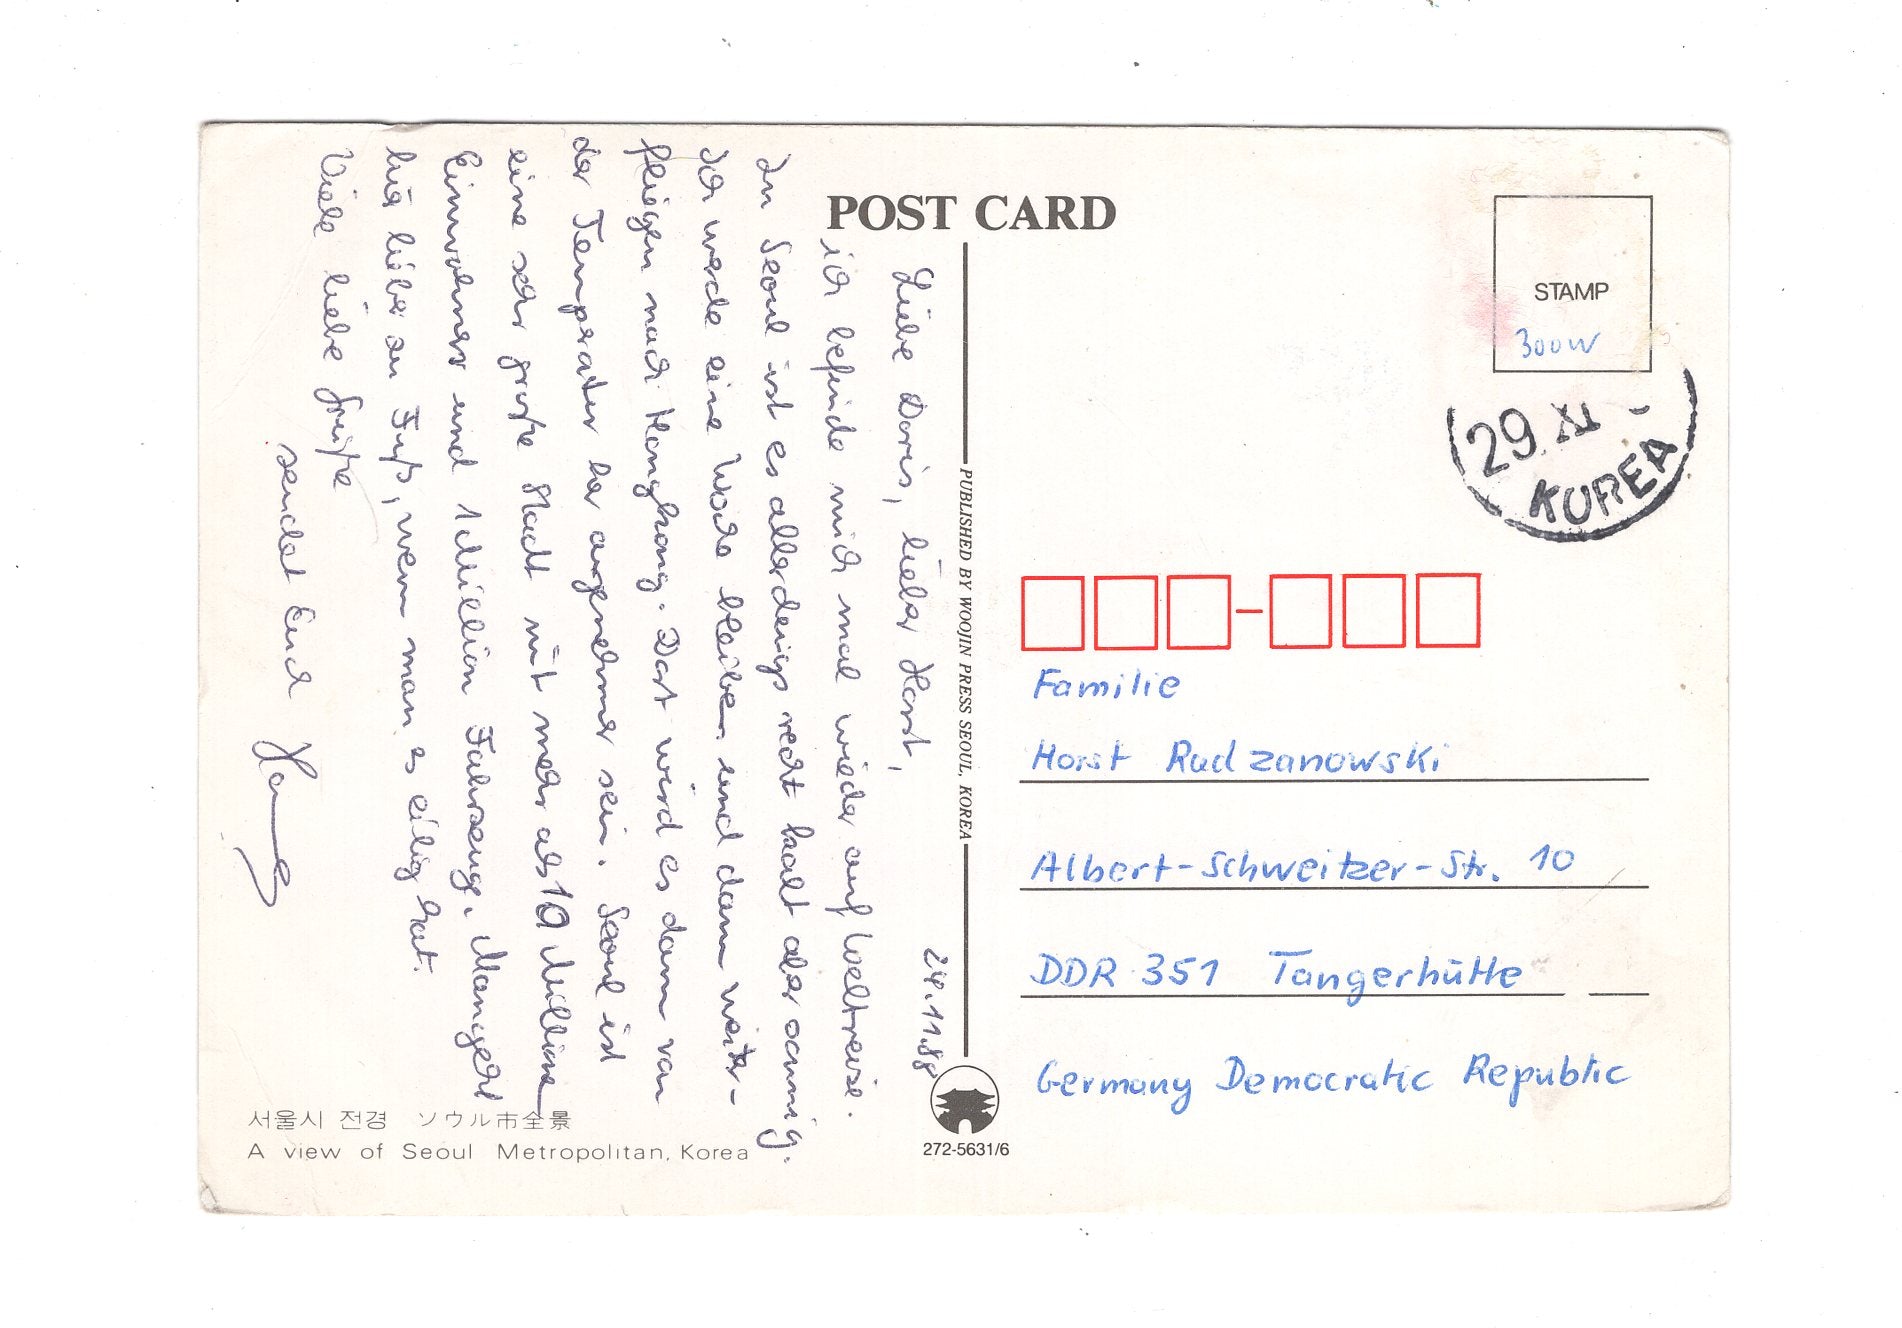 POST CARD
24.11.88
Liebe Doris, lieber Horst,
ich befinde mich mal wieder auf Weltreise.
In Seoul ist es allerdings recht kalt aber sonnig.
Ich werde eine Woche bleiben und dann weiter-
fliegen nach Hongkong. Dort wird es dann von
der Temperatur her angenehmer sein. Seoul ist
eine sehr große Stadt mit mehr als 10 Millionen
Einwohner und 1 Million Fahrzeuge. Man geht
hier lieber zu Fuß, wenn man es eilig hat.
Viele liebe Grüße
sendet Euch
서울시 전경 ソウル市全景
A view of Seoul Metropolitan, Korea
PUBLISHED BY WOOJIN PRESS SEOUL, KOREA
272-5631/6
STAMP
300W
29.XI
KOREA
Familie
Horst Radzanowski
Albert-Schweitzer-Str. 10
DDR 351 Tangerhütte
Germany Democratic Republic